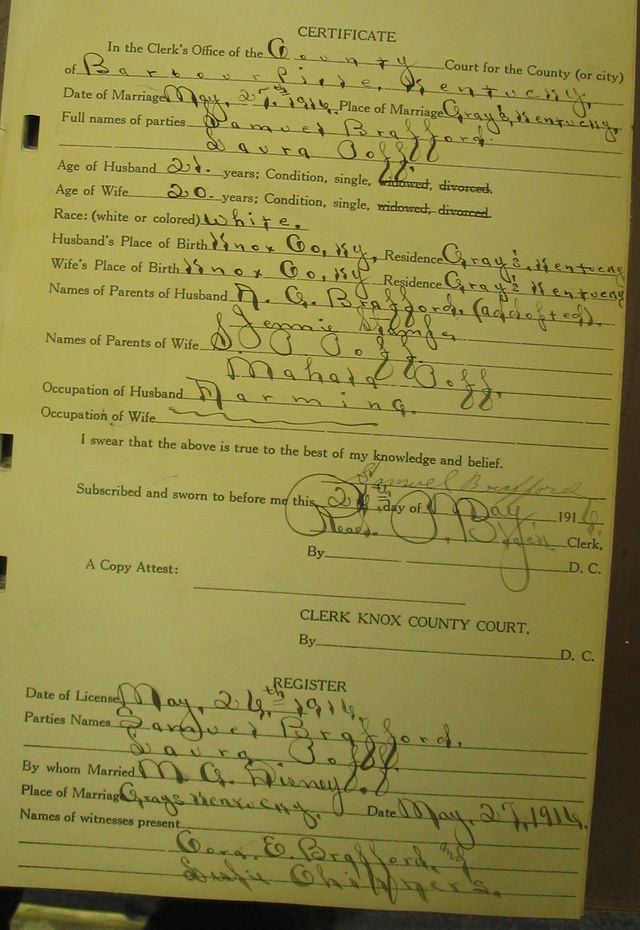 CERTIFICATE
In the Clerk's Office of the County Court for the County (or city)
of Barbourville, Kentucky,
Date of Marriage May, 27th 1916 Place of Marriage Gray's, Kentucky,
Full names of parties Samuel Brafford.
Laura Poff
Age of Husband 21. years; Condition, single, widowed, divorced.
Age of Wife 20. years; Condition, single, widowed, divorced.
Race: (white or colored) White.
Husband's Place of Birth Knox Co, Ky, Residence Gray's, Kentucky
Wife's Place of Birth Knox Co, Ky Residence Gray's Kentucky
Names of Parents of Husband Brafford. (adopted).
Jennie
Names of Parents of Wife Poff.
Mahala Poff.
Occupation of Husband Farming.
Occupation of Wife
I swear that the above is true to the best of my knowledge and belief.
Samuel Brafford
Subscribed and sworn to before me this day of May 1916
Read. Clerk,
By D. C.
A Copy Attest:
CLERK KNOX COUNTY COURT,
By D. C.
REGISTER
Date of License May, 26th 1916,
Parties Names Samuel Brafford,
Laura Poff.
By whom Married M. G. Disney.
Place of Marriage Grays Kentucky. Date May, 27, 1916.
Names of witnesses present
Cora. E. Brafford, and
Susie